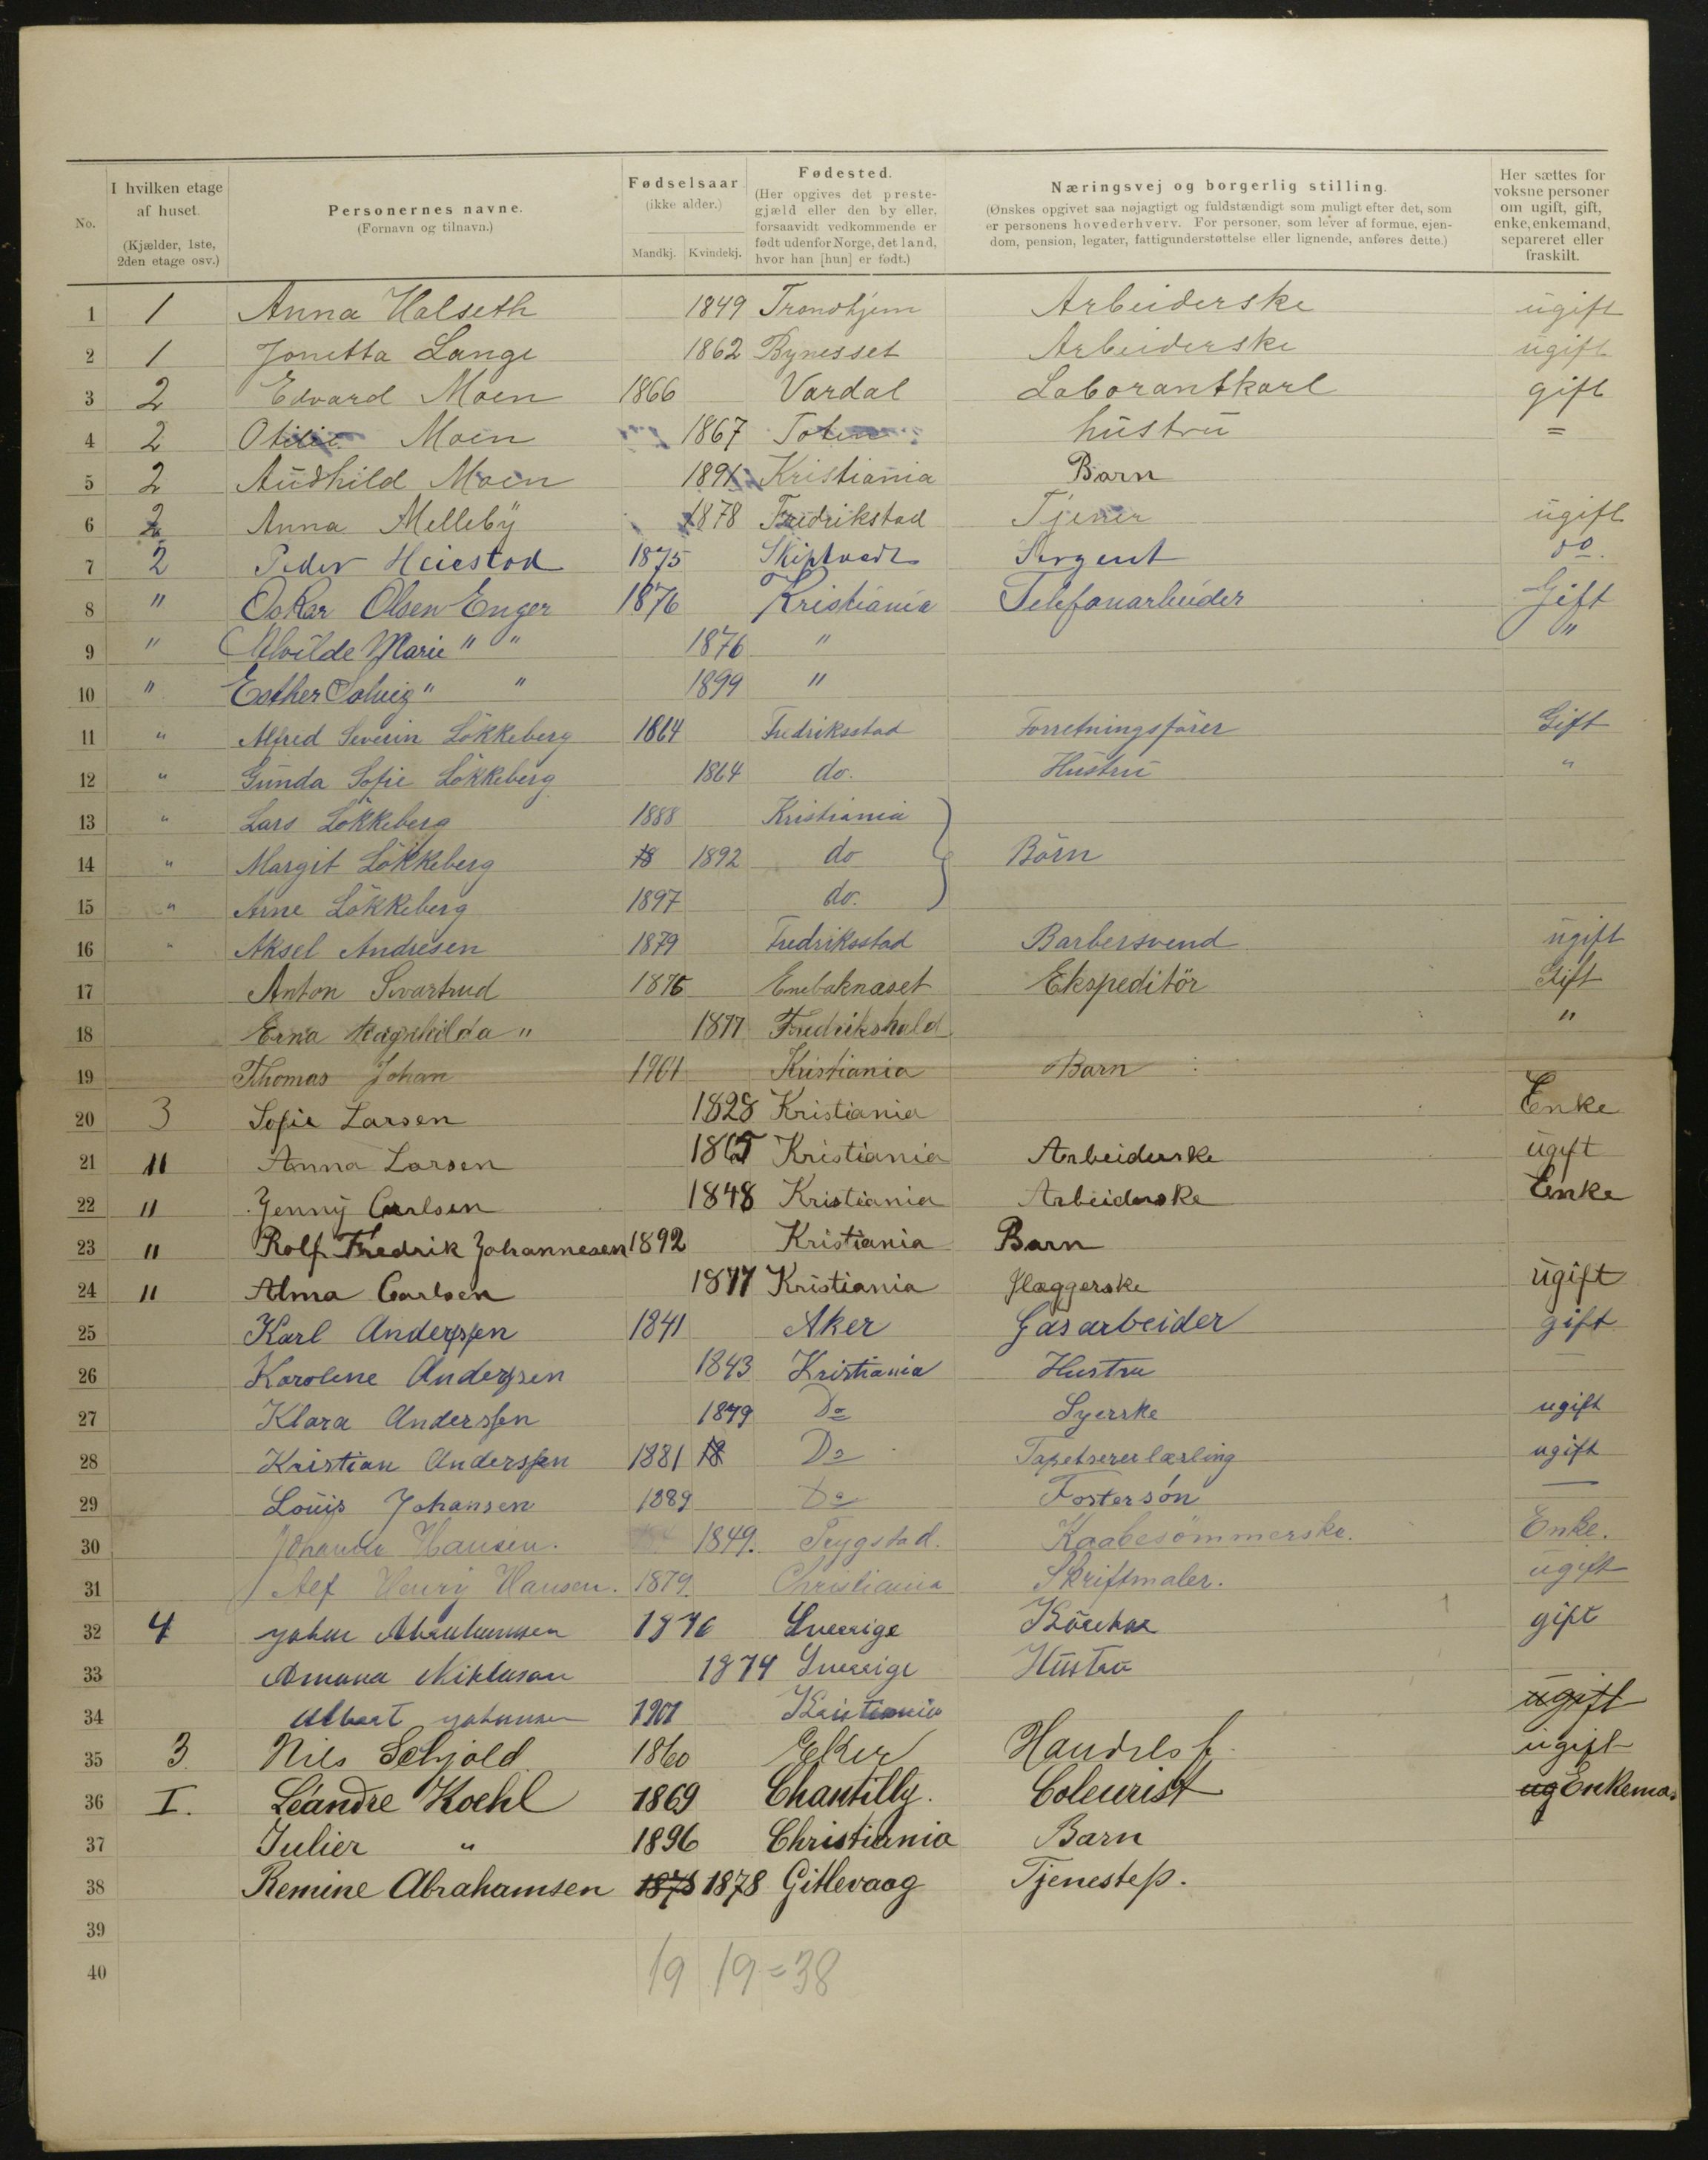 No.
I hvilken etage
af huset.
(Kjælder, 1ste,
2den etage osv.)
Personernes navne.
(Fornavn og tilnavn.)
Fødselsaar
(ikke alder.)
Mandkj. Kvindekj.
Fødested.
(Her opgives det preste-
gjæld eller den by eller,
forsaavidt vedkommende er
født udenfor Norge, det land,
hvor han [hun] er født.)
Næringsvej og borgerlig stilling.
(Ønskes opgivet saa nøjagtigt og fuldstændigt som muligt efter det, som
er personens hovederhverv. For personer, som lever af formue, ejen-
dom, pension, legater, fattigunderstøttelse eller lignende, anføres dette.)
Her sættes for
voksne personer
om ugift, gift,
enke, enkemand,
separeret eller
fraskilt.
1 1 Anna Halseth 1849 Trondhjem Arbeiderske ugift
2 1 Jonetta Lange 1862 Bynesset Arbeiderske ugift
3 2 Edvard Moen 1866 Vardal Laborantkarl gift
4 2 Otilie Moen 1867 Toten hustru =
5 2 Audhild Moen 1891 Kristiania Barn
6 2 Anna Melleby 1878 Fredrikstad Tjener ugift
7 2 Peder Heiestad 1875 Skiptvedt Sergent do.
8 " Oskar Olsen Enger 1876 Kristiania Telefonarbeider Gift
9 " Alvilde Marie " " 1876 " "
10 " Esther Solveig " " 1899 "
11 " Alfred Severin Lökkeberg 1864 Fredriksstad Forretningsfører Gift
12 " Gunda Sofie Lökkeberg 1864 do. Hustru "
13 " Lars Lökkeberg 1888 Kristiania
14 " Margit Lökkeberg 18 1892 do Börn
15 " Arne Lökkeberg 1897 do.
16 " Aksel Andresen 1879 Fredriksstad Barbersvend ugift
17 Anton Svartrud 1876 Enebaknæset Ekspeditör Gift
18 Erna Ragnhilda " 1877 Fredrikshald "
19 Thomas Johan 1901 Kristiania Barn
20 3 Sofie Larsen 1828 Kristiania Enke
21 " Anna Larsen 1865 Kristiania Arbeiderske ugift
22 " Jenny Carlsen 1848 Kristiania Arbeiderske Enke
23 " Rolf Fredrik Johannesen 1892 Kristiania Barn
24 " Alma Carlsen 1877 Kristiania Flæggerske ugift
25 Karl Anderssen 1841 Aker Gasarbeider gift
26 Karolene Anderssen 1843 Kristiania Hustru —
27 Klara Anderssen 1879 Do Syerske ugift
28 Kristian Anderssen 1881 18 Do Tapetsererlærling ugift
29 Louis Johansen 1889 Do Fostersön —
30 Johanne Hansen. 1849. Trygstad. Kaabesömmerske. Enke.
31 Alf Henry Hansen. 1879. Christiania Skriftmaler. ugift
32 4 Johan 1876 Sverige gift
33 Amana Niklasson 1874 Sverige Hustru
34 Albert Johansen 1901 Kristiania ugift
35 3 Nils Schjold 1860 Eker Handels f. ugift
36 I. Léandre Koehl 1869 Chantilly. Coleurist ug Enkema.
37 Julier " 1896 Christiania Barn
38 Remine Abrahamsen 1878 1878 Gitlevaag Tjenestep.
39
40
19 19 = 38